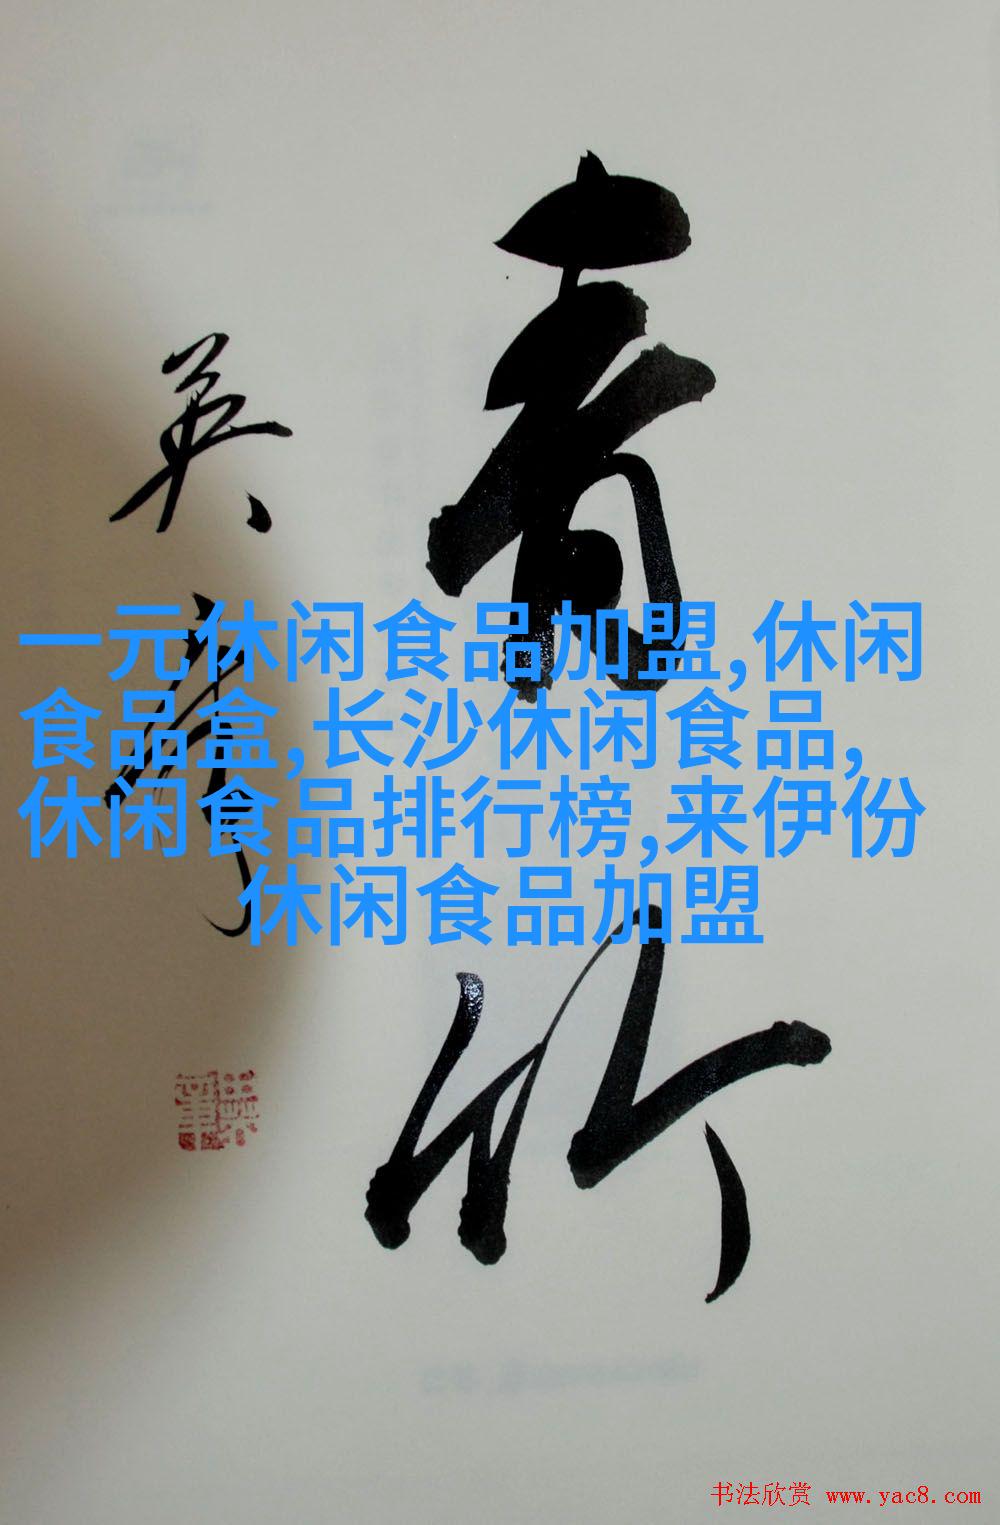 一元休闲食品加盟,休闲
食品盒,长沙休闲食品,
休闲食品排行榜,来伊份
休闲食品加盟
竹
英
书法欣赏 www.yac8.com